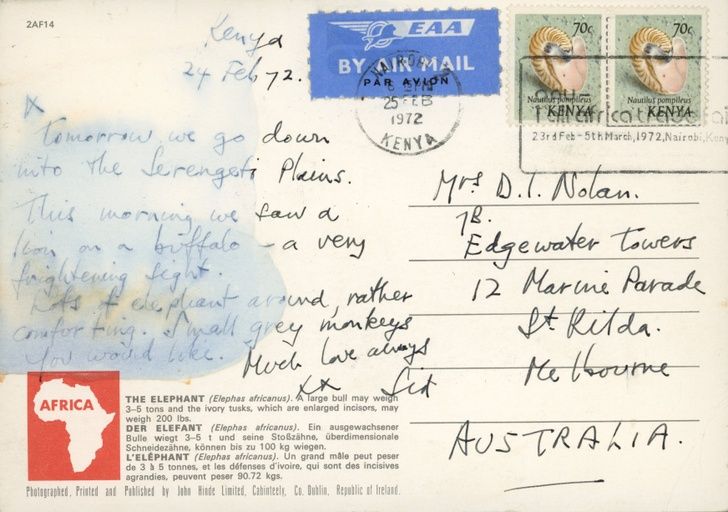 2AF14
Kenya
24 Feb 72.
x
Tomorrow we go down
into the Serengeti Plains.
This morning we saw a
lion on a buffalo - a very
frightening sight.
Lots of elephant around, rather
comforting. Small grey monkeys
you would like. Much love always
xx Sid
EAA
BY AIR MAIL
PAR AVION
NAIROBI
25 FEB
1972
KENYA
70c
Nautilus pompileus
KENYA
70c
Nautilus pompileus
KENYA
23rd Feb - 5th March, 1972, Nairobi, Keny
Mrs D. I. Nolan.
7B.
Edgewater Towers
12 Marine Parade
St. Kilda.
Melbourne
AUSTRALIA.
AFRICA
THE ELEPHANT (Elephas africanus). A large bull may weigh
3–5 tons and the ivory tusks, which are enlarged incisors, may
weigh 200 lbs.
DER ELEFANT (Elephas africanus). Ein ausgewachsener
Bulle wiegt 3–5 t und seine Stoßzähne, überdimensionale
Schneidezähne, können bis zu 100 kg wiegen.
L'ELÉPHANT (Elephas africanus). Un grand mâle peut peser
de 3 à 5 tonnes, et les défenses d'ivoire, qui sont des incisives
agrandies, peuvent peser 90.72 kgs.
Photographed, Printed and Published by John Hinde Limited, Cabinteely, Co. Dublin, Republic of Ireland.